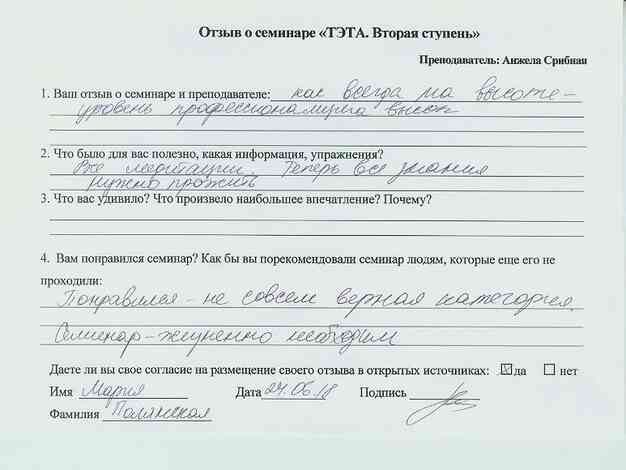 Отзыв о семинаре «ТЭТА. Вторая ступень»
Преподаватель: Анжела Срибная
1. Ваш отзыв о семинаре и преподавателе: как всегда на высоте –
уровень профессионализма высок
2. Что было для вас полезно, какая информация, упражнения?
Все медитации. Теперь все знания
нужно прожить
3. Что вас удивило? Что произвело наибольшее впечатление? Почему?
4. Вам понравился семинар? Как бы вы порекомендовали семинар людям, которые еще его не
проходили:
Понравился – не совсем верная категория.
Семинар – жизненно необходим
Даете ли вы свое согласие на размещение своего отзыва в открытых источниках: да нет
Имя Мария Дата 24.06.18 Подпись
Фамилия Полянская